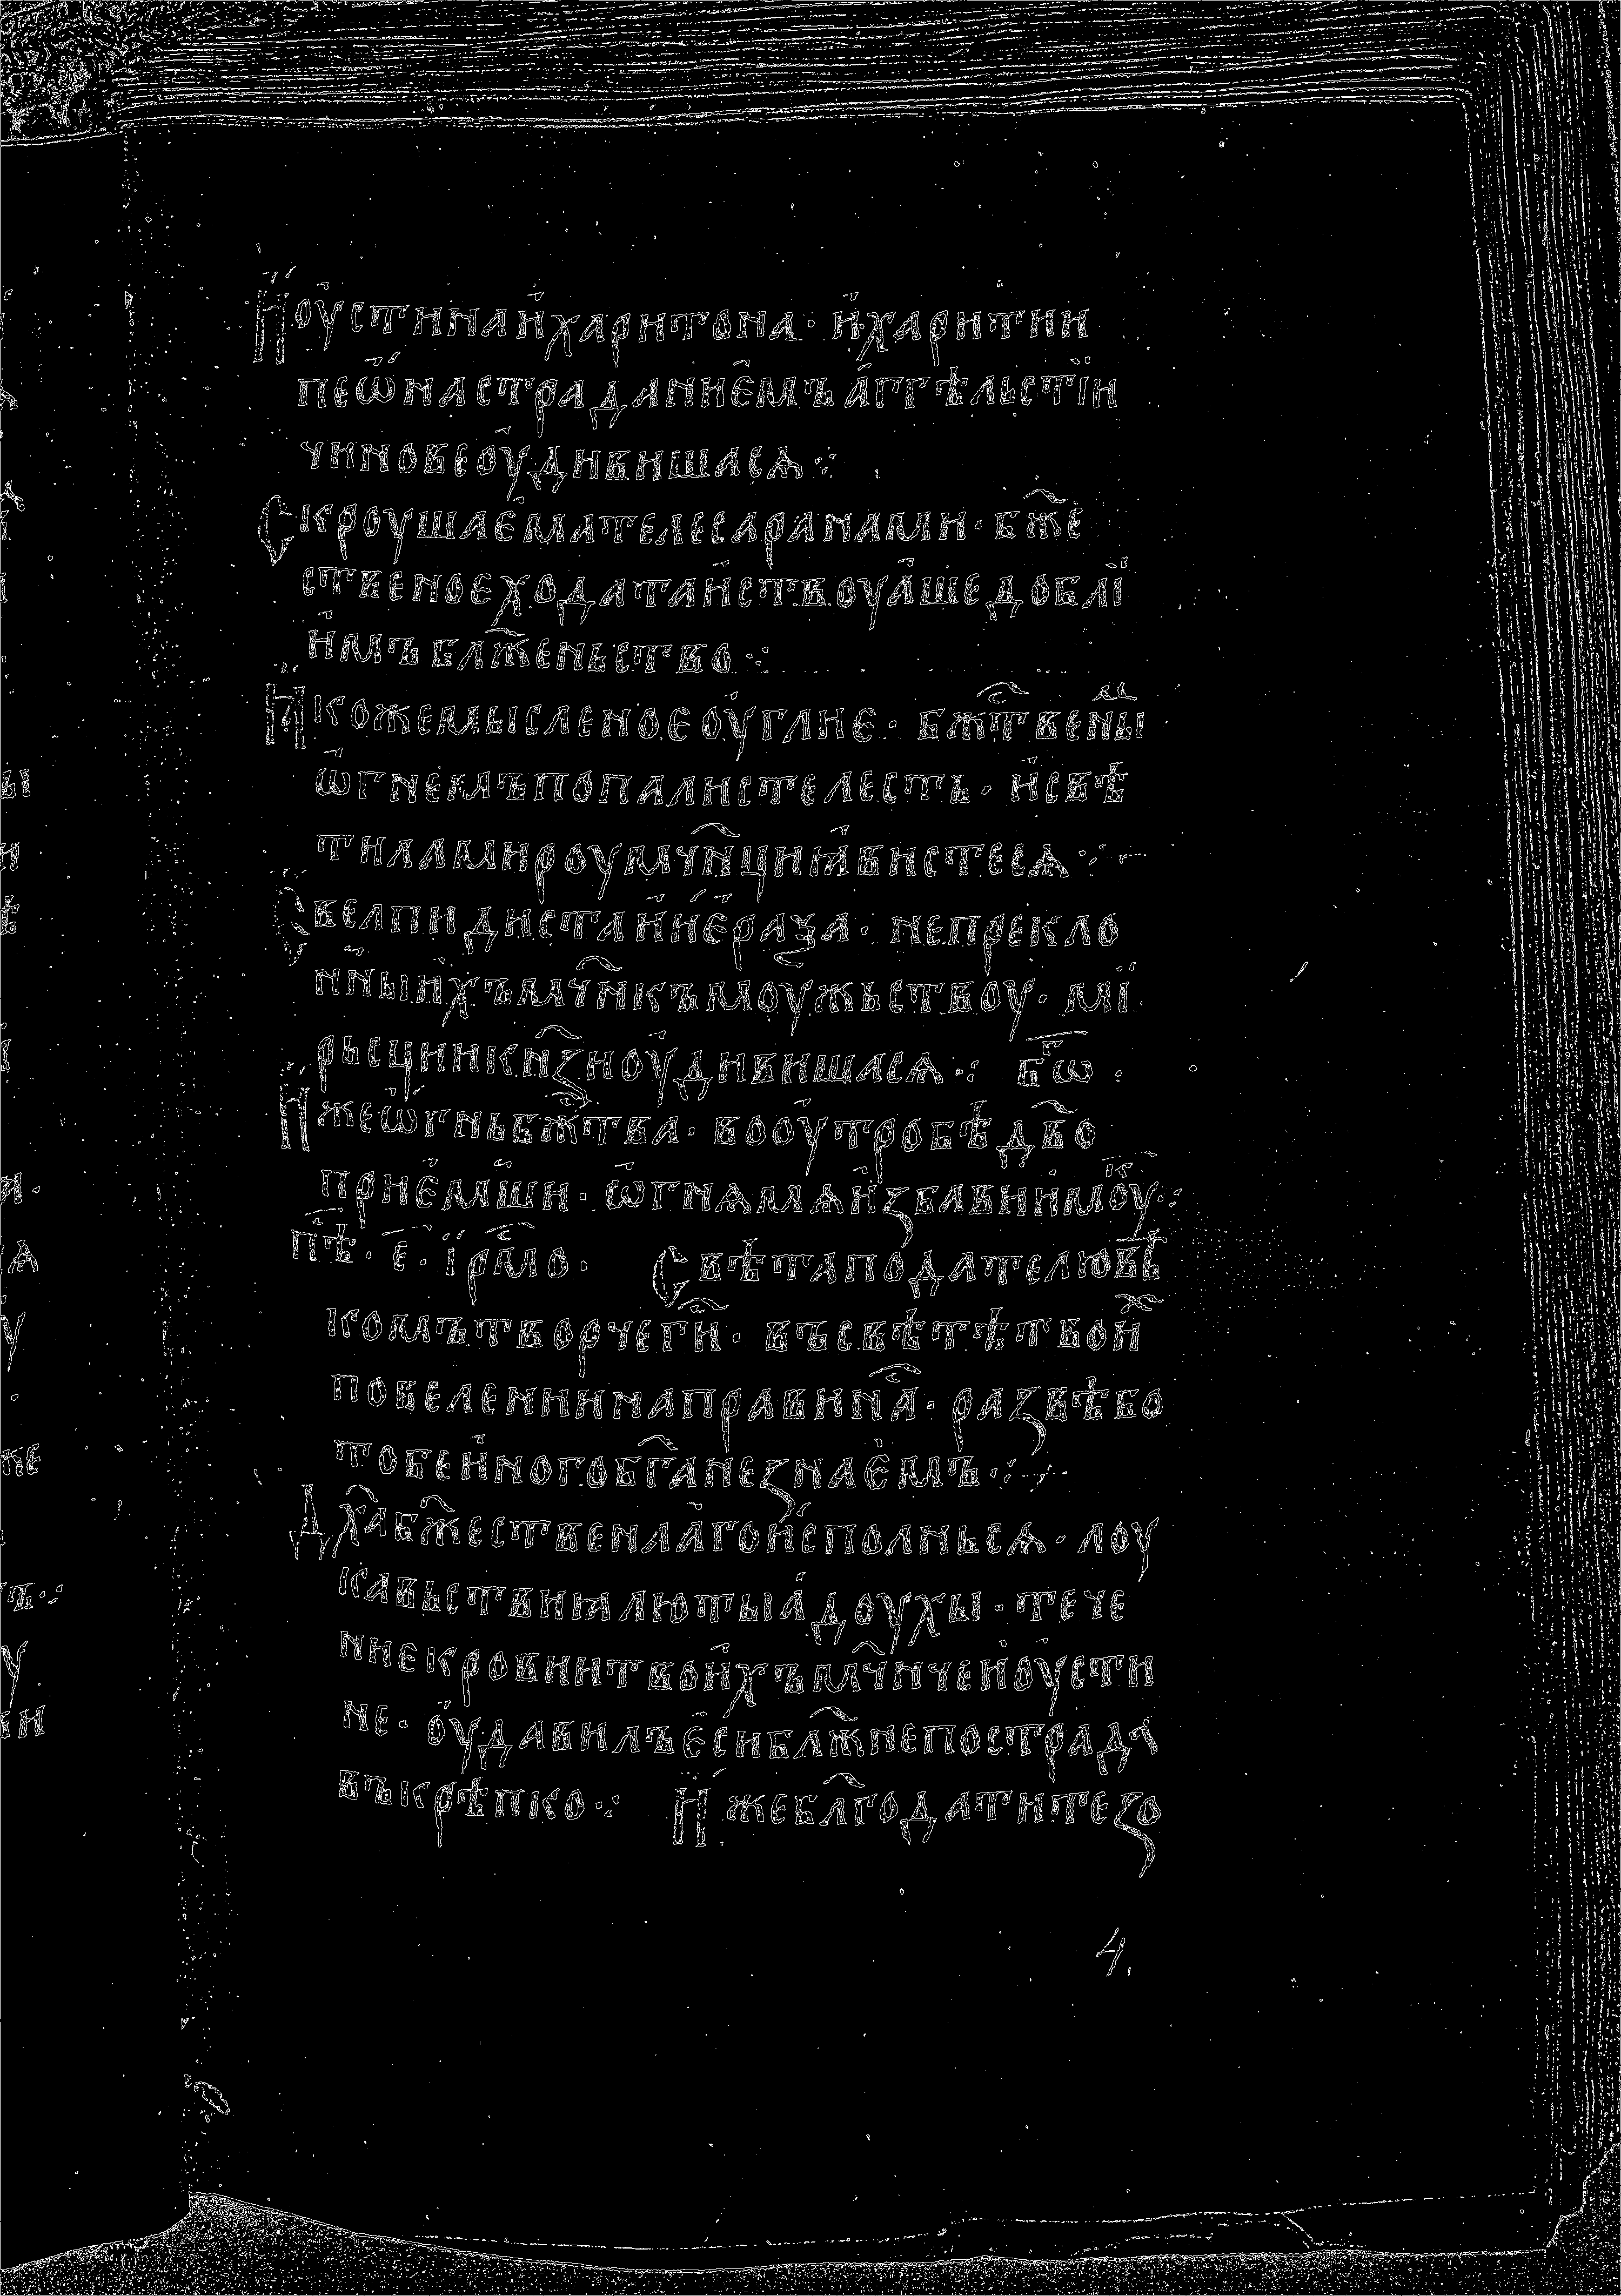 Иоустинаихаритона· ихаритии
пеѡнастраданиемъ аггѣльстіи
чиновеоудивишасѧ ⁘
Скроушаематѣлесаранами· бж҃е
ственоеходатаиствоуашедоблі
имъблж҃еньство ⁖
Ꙗкожемысленоеоуглие· бжⷭ҇твены
ѡгнемъпопалистелесть· исвѣ
тиламироумч҃нциꙗвистесѧ ⁘
Свелпидистаиниераꙁа· непрекло
нныихъмч҃нкъмоужьствоу· мі
рьсциикн҃ꙁиоудивишасѧ ⁖ бг҃ѡ ·
Ижеѡгньбжⷭ҇тва· вооутробѣдв҃о
приемши· ѡгнѧмѧиꙁбавиимⷦ҇оу ⁖
пѣⷭ҇· е҃· ірмⷭ҇о· Свѣтаподателювѣ
комътворчеги҃· въсвѣтѣтвоиⷯ
повелениинаправинⷭ҇а· раꙁвѣбо
тобеиногобг҃анеꙁнаемъ ⁘
Дх҃абж҃ественаагоисполньсѧ· лоу
кавьствиꙗлютыꙗдоухы· тече
ниекровиитвоихъмч҃нчеиоусти
не· оудавилъесиблж҃непострада
въкрѣпко ⁖ Ижебл҃годатитеꙁо
4.